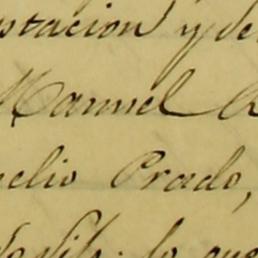 stacion y de
Manuel
elio Prado,
lo que